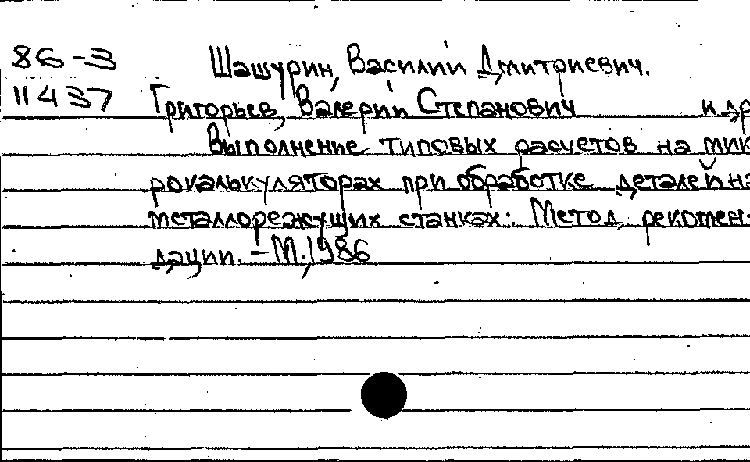 86-3 Шашурин, Василий Дмитриевич.
11437 Григорьев, Валерий Степанович и др
Выполнение типовых расчетов на мик
рокалькуляторах при обработке деталей на
металлорежущих станках: Метод. рекомен-
дации. - М., 1986